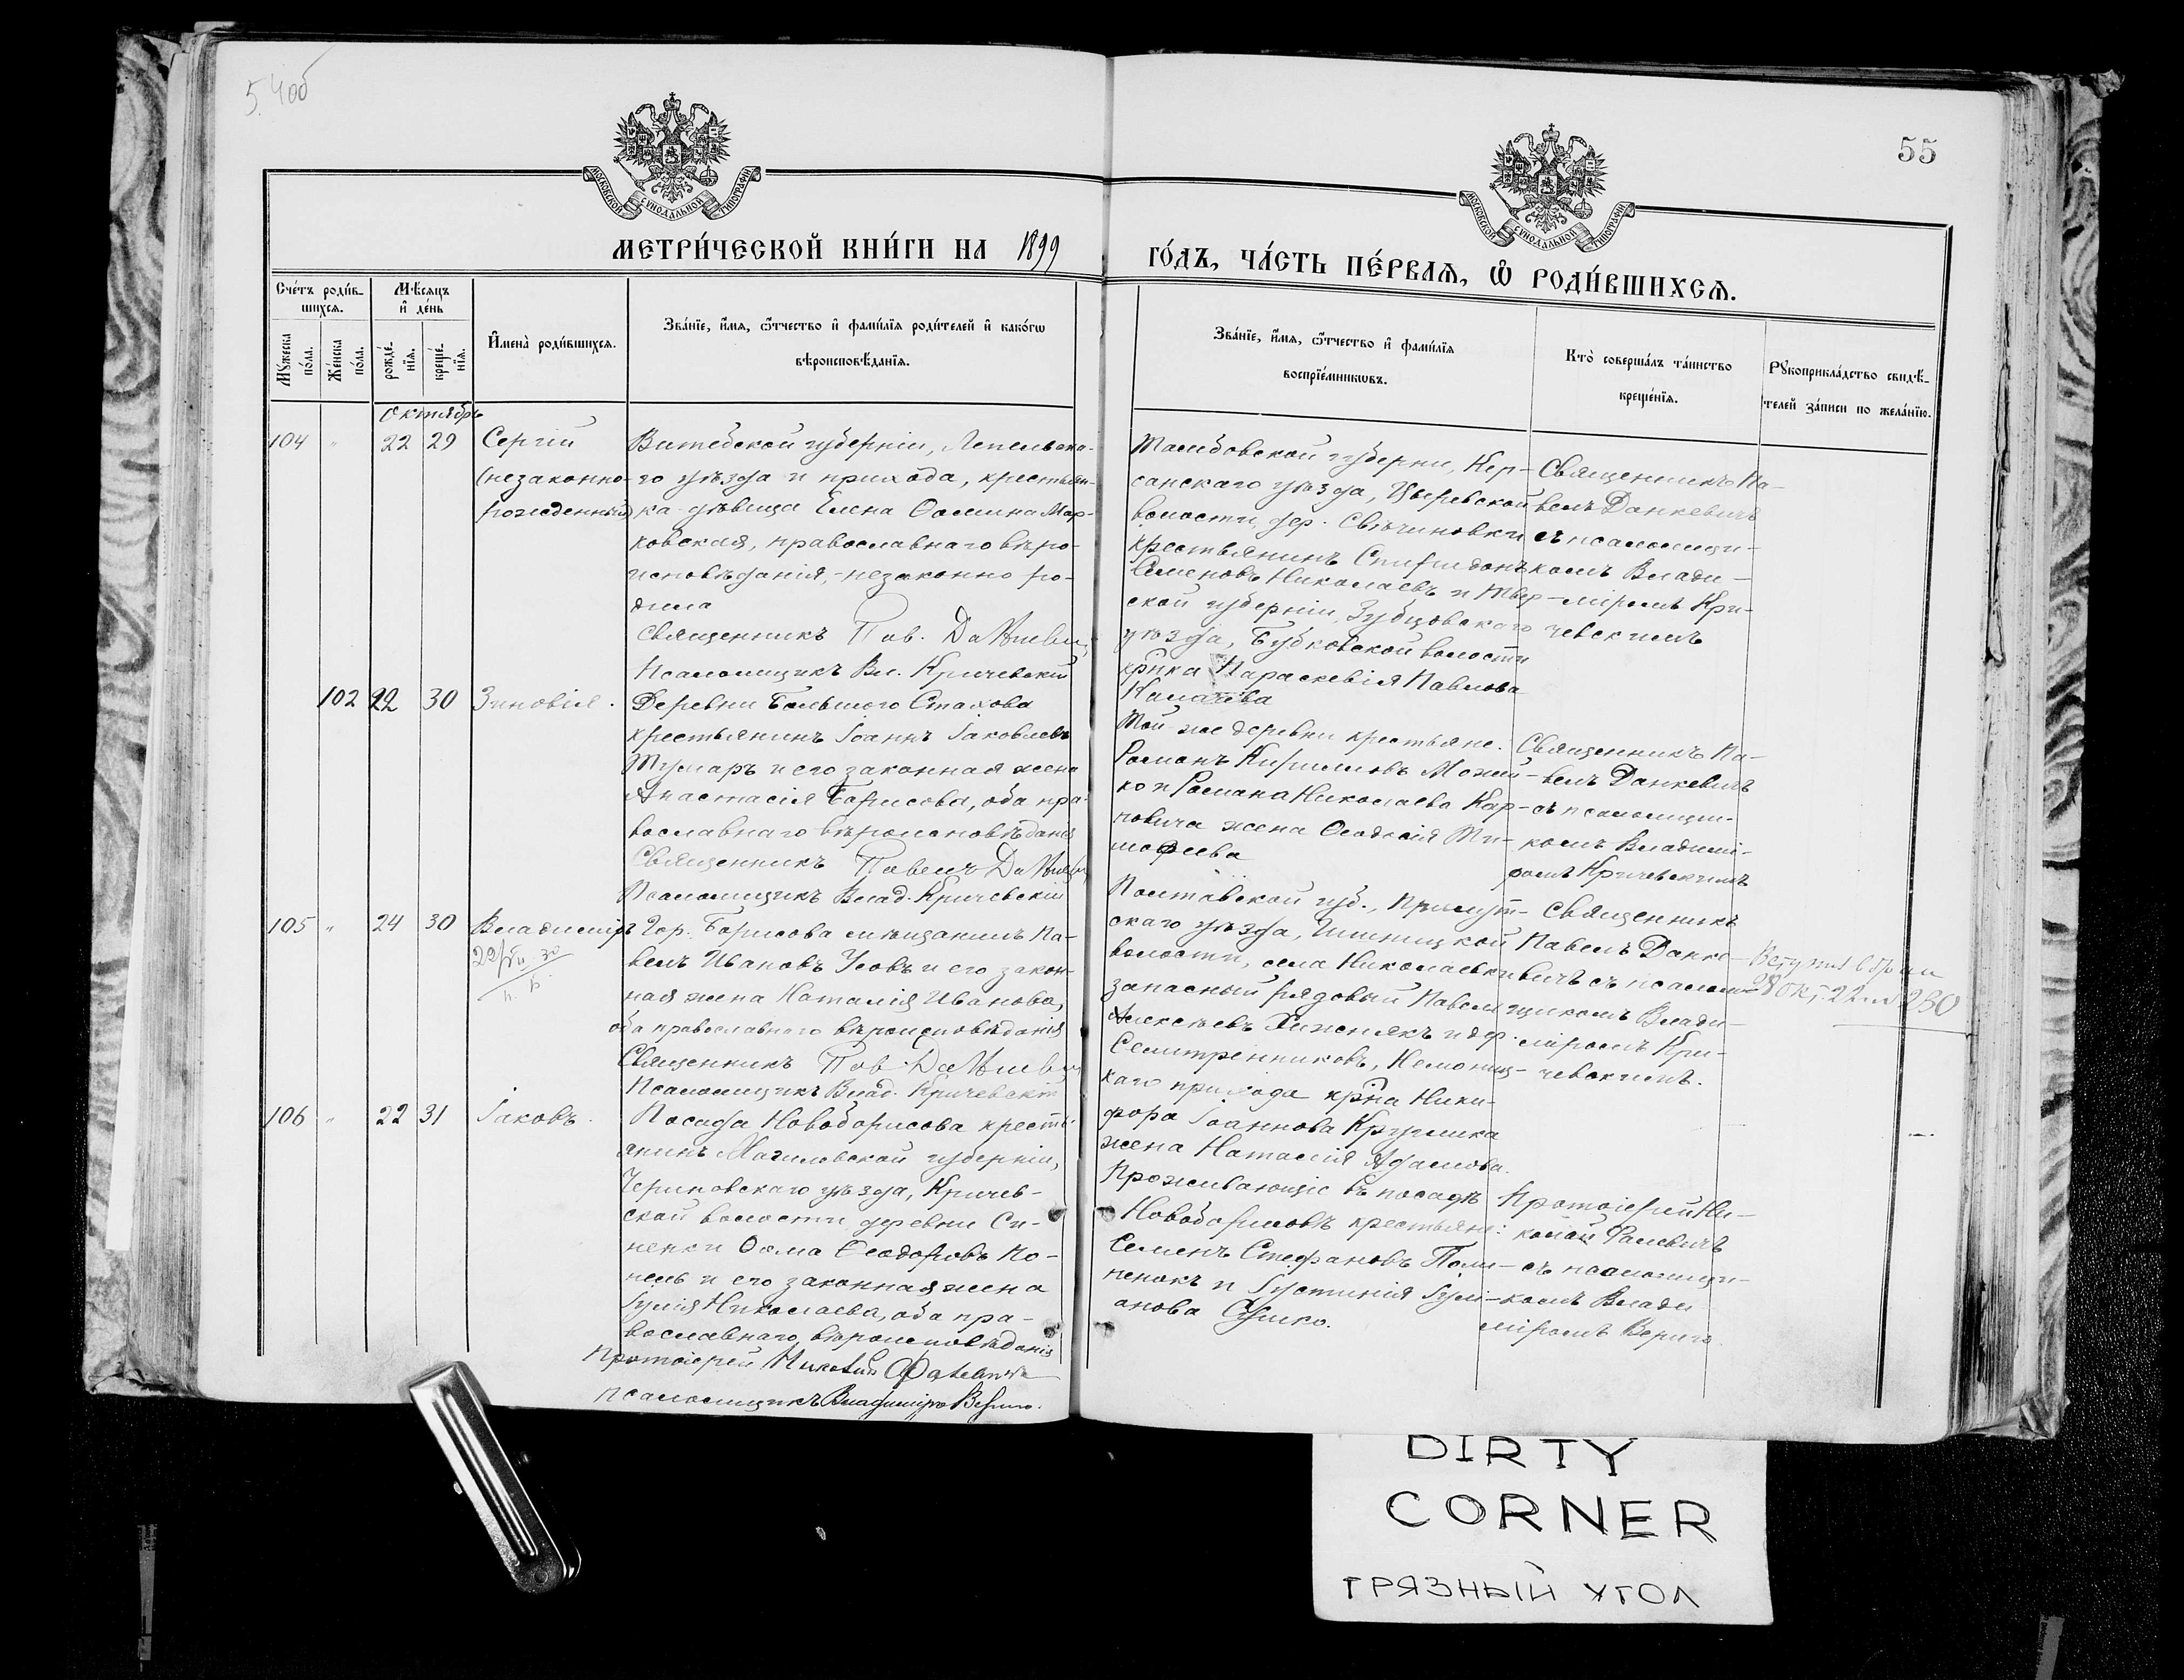 55
МОСКОВСКОЙ СѴНОДАЛЬНОЙ ТИПОГРАФІИ
МОСКОВСКОЙ СѴНОДАЛЬНОЙ ТИПОГРАФІИ
МЕТРИ́ЧЕСКОЙ КНИ́ГИ НА 1899
ГО́ДЪ, ЧА́СТЬ ПЕ́РВАЯ, Ѽ РОДИ́ВШИХСЯ.
Сче́тъ роди́в-
шихся.
Мꙋжеска по́ла.
Же́нска по́ла.
Мѣсяцъ
и де́нь
рожде́-
нїя.
креще́-
нїя.
Имена̀ роди́вшихся.
Зва́нїе, и́мя, ѻ́тчество и фами́лїя роди́телей и како́гѡ
вѣроисповѣ́данїя.
Зва́нїе, и́мя, ѻ́тчество и фами́лїя
воспрїе́мникѡвъ.
Кто̀ соверша́лъ та́инство
креще́нїя.
Рꙋкоприкла́дство свидѣ́-
телей за́писи по жела́нїю.
Октябрь
104 " 22 29 Сергій
(незаконно-
рожденный)
Витебской губерніи, Лепельска-
го уѣзда и прихода, крестьян-
ка дѣвица Елена Ѳомина Мар-
ковская, православнаго вѣро-
исповѣданія, - незаконно ро-
дила
Священникъ Пав. Данкевичъ
Псаломщикъ Вл. Кричевскій
Тамбовской губерни, Кер-
санскаго уѣзда,
волости, дер. Свѣчиновки
крестьянинъ Спиридонъ
Семеновъ Николаевъ и Твер-
ской губерніи, Зубцовскаго
уѣзда, Бубковской волости
кр̃нка Параскевія Павлова
Священникъ Па-
велъ Данкевичъ
съ псаломщи-
комъ Влади-
міромъ Кри-
чевскимъ
102 22 30 Зиновія.
Деревни Большого Стахова
крестьянинъ Іоаннъ Іаковлевъ
Тумаръ и его законная жена
Анастасія Борисова, оба пра-
вославнаго вѣроисповѣданія
Священникъ Павелъ Данкевичъ
Псаломщикъ Влад. Кричевскій
Той же деревни крестьяне:
Романъ Кирилловъ Можей-
ко и Романа Николаева Кар-
повича жена Ѳеодосія Ти-
моѳеева
Священникъ Па-
велъ Данкевичъ
съ псаломщи-
комъ Владимі-
ромъ Кричевскимъ
105 " 24 30 Владиміръ
Гор. Борисова мѣщанинъ Па-
велъ Ивановъ Усовъ и его закон-
ная жена Наталія Иванова,
оба православнаго вѣроисповѣданія
Священникъ Пав. Данкевичъ
Псаломщикъ Влад. Кричевскій
Полтавской губ., Прилут-
скаго уѣзда,
волости, села Николаевки
запасный рядовый Павелъ
Алексѣевъ Хижнякъ и дер.
Селитренниковъ,
каго прихода кр̃на Ники-
фора Іоаннова Круглика
жена Наталія Адамова.
Священникъ
Павелъ Данке-
вичъ съ псалом-
щикомъ Влади-
міромъ Кри-
чевскимъ.
106 " 22 31 Іаковъ.
Посада Новоборисова кресть-
янинъ Могилевской губерніи,
Чериковскаго уѣзда, Кричев-
ской волости деревни Си-
ненки Ѳома Ѳеодоровъ Ко-
нель и его законная жена
Іулія Николаева, оба пра-
вославнаго вѣроисповѣданія
Протоіерей Николай Фалевичъ
псаломщикъ Владиміръ Вериго.
Проживающіе въ посадѣ
Новоборисовѣ крестьяне:
Семенъ Стефановъ Поли-
ненокъ и Іустинія Іулі-
анова
Протоіерей Ни-
колай Фалевичъ
съ псаломщи-
комъ Влади
міромъ Вериго.
DIRTY
CORNER
ГРЯЗНЫЙ УГОЛ